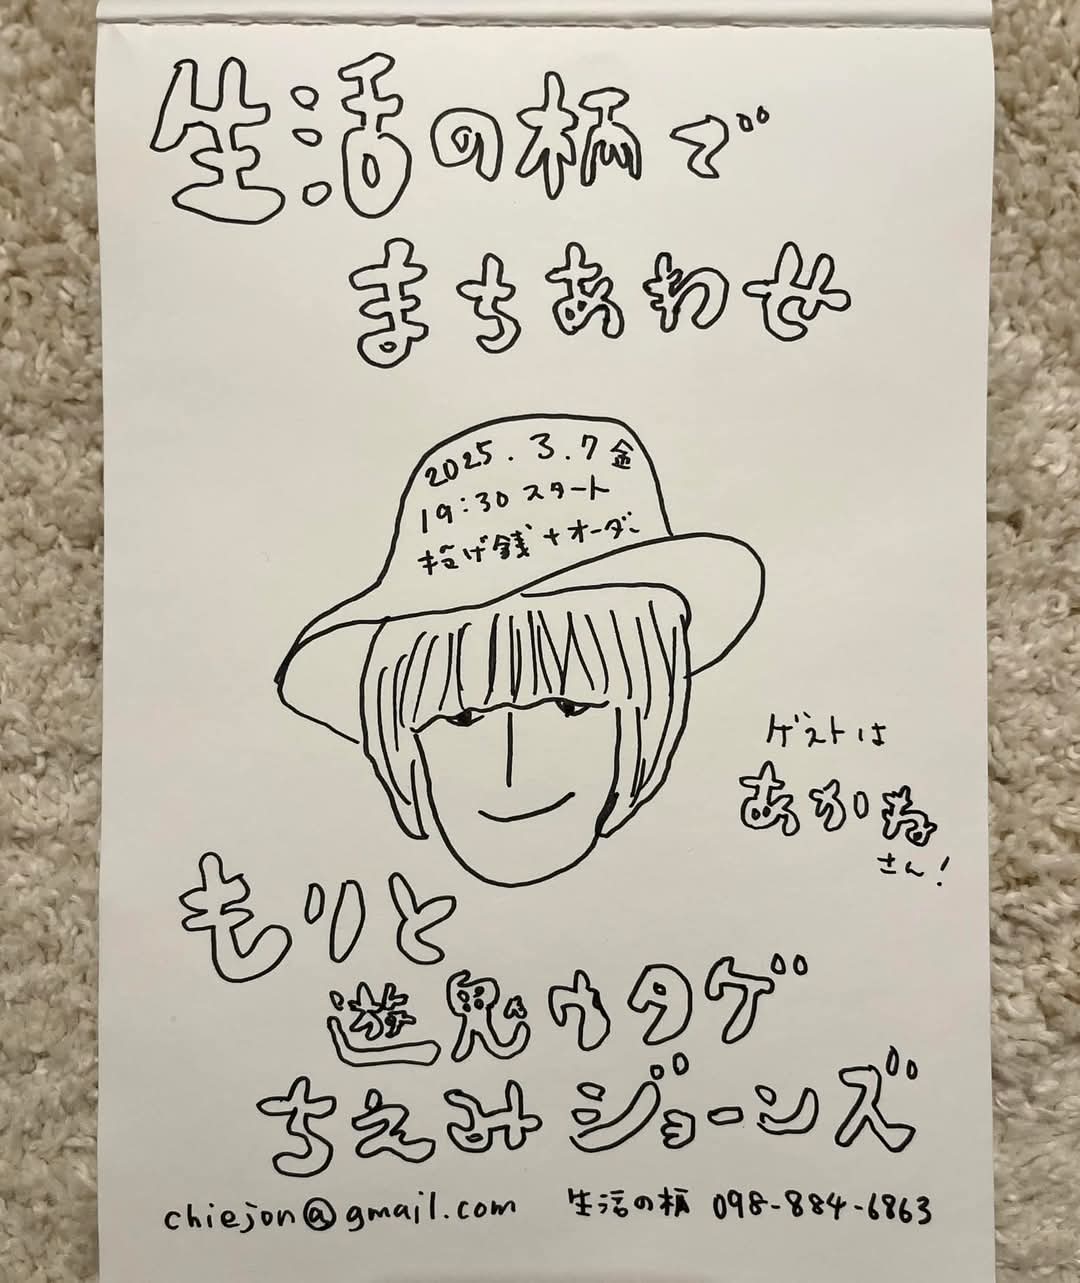 生活の柄で
まちあわせ
2025.3.7金
19:30スタート
投げ銭+オーダー
ゲストは
あかね
さん!
もりと
遊鬼ウタゲ
ちえみジョーンズ
chiejon@gmail.com 生活の柄 098-884-6863